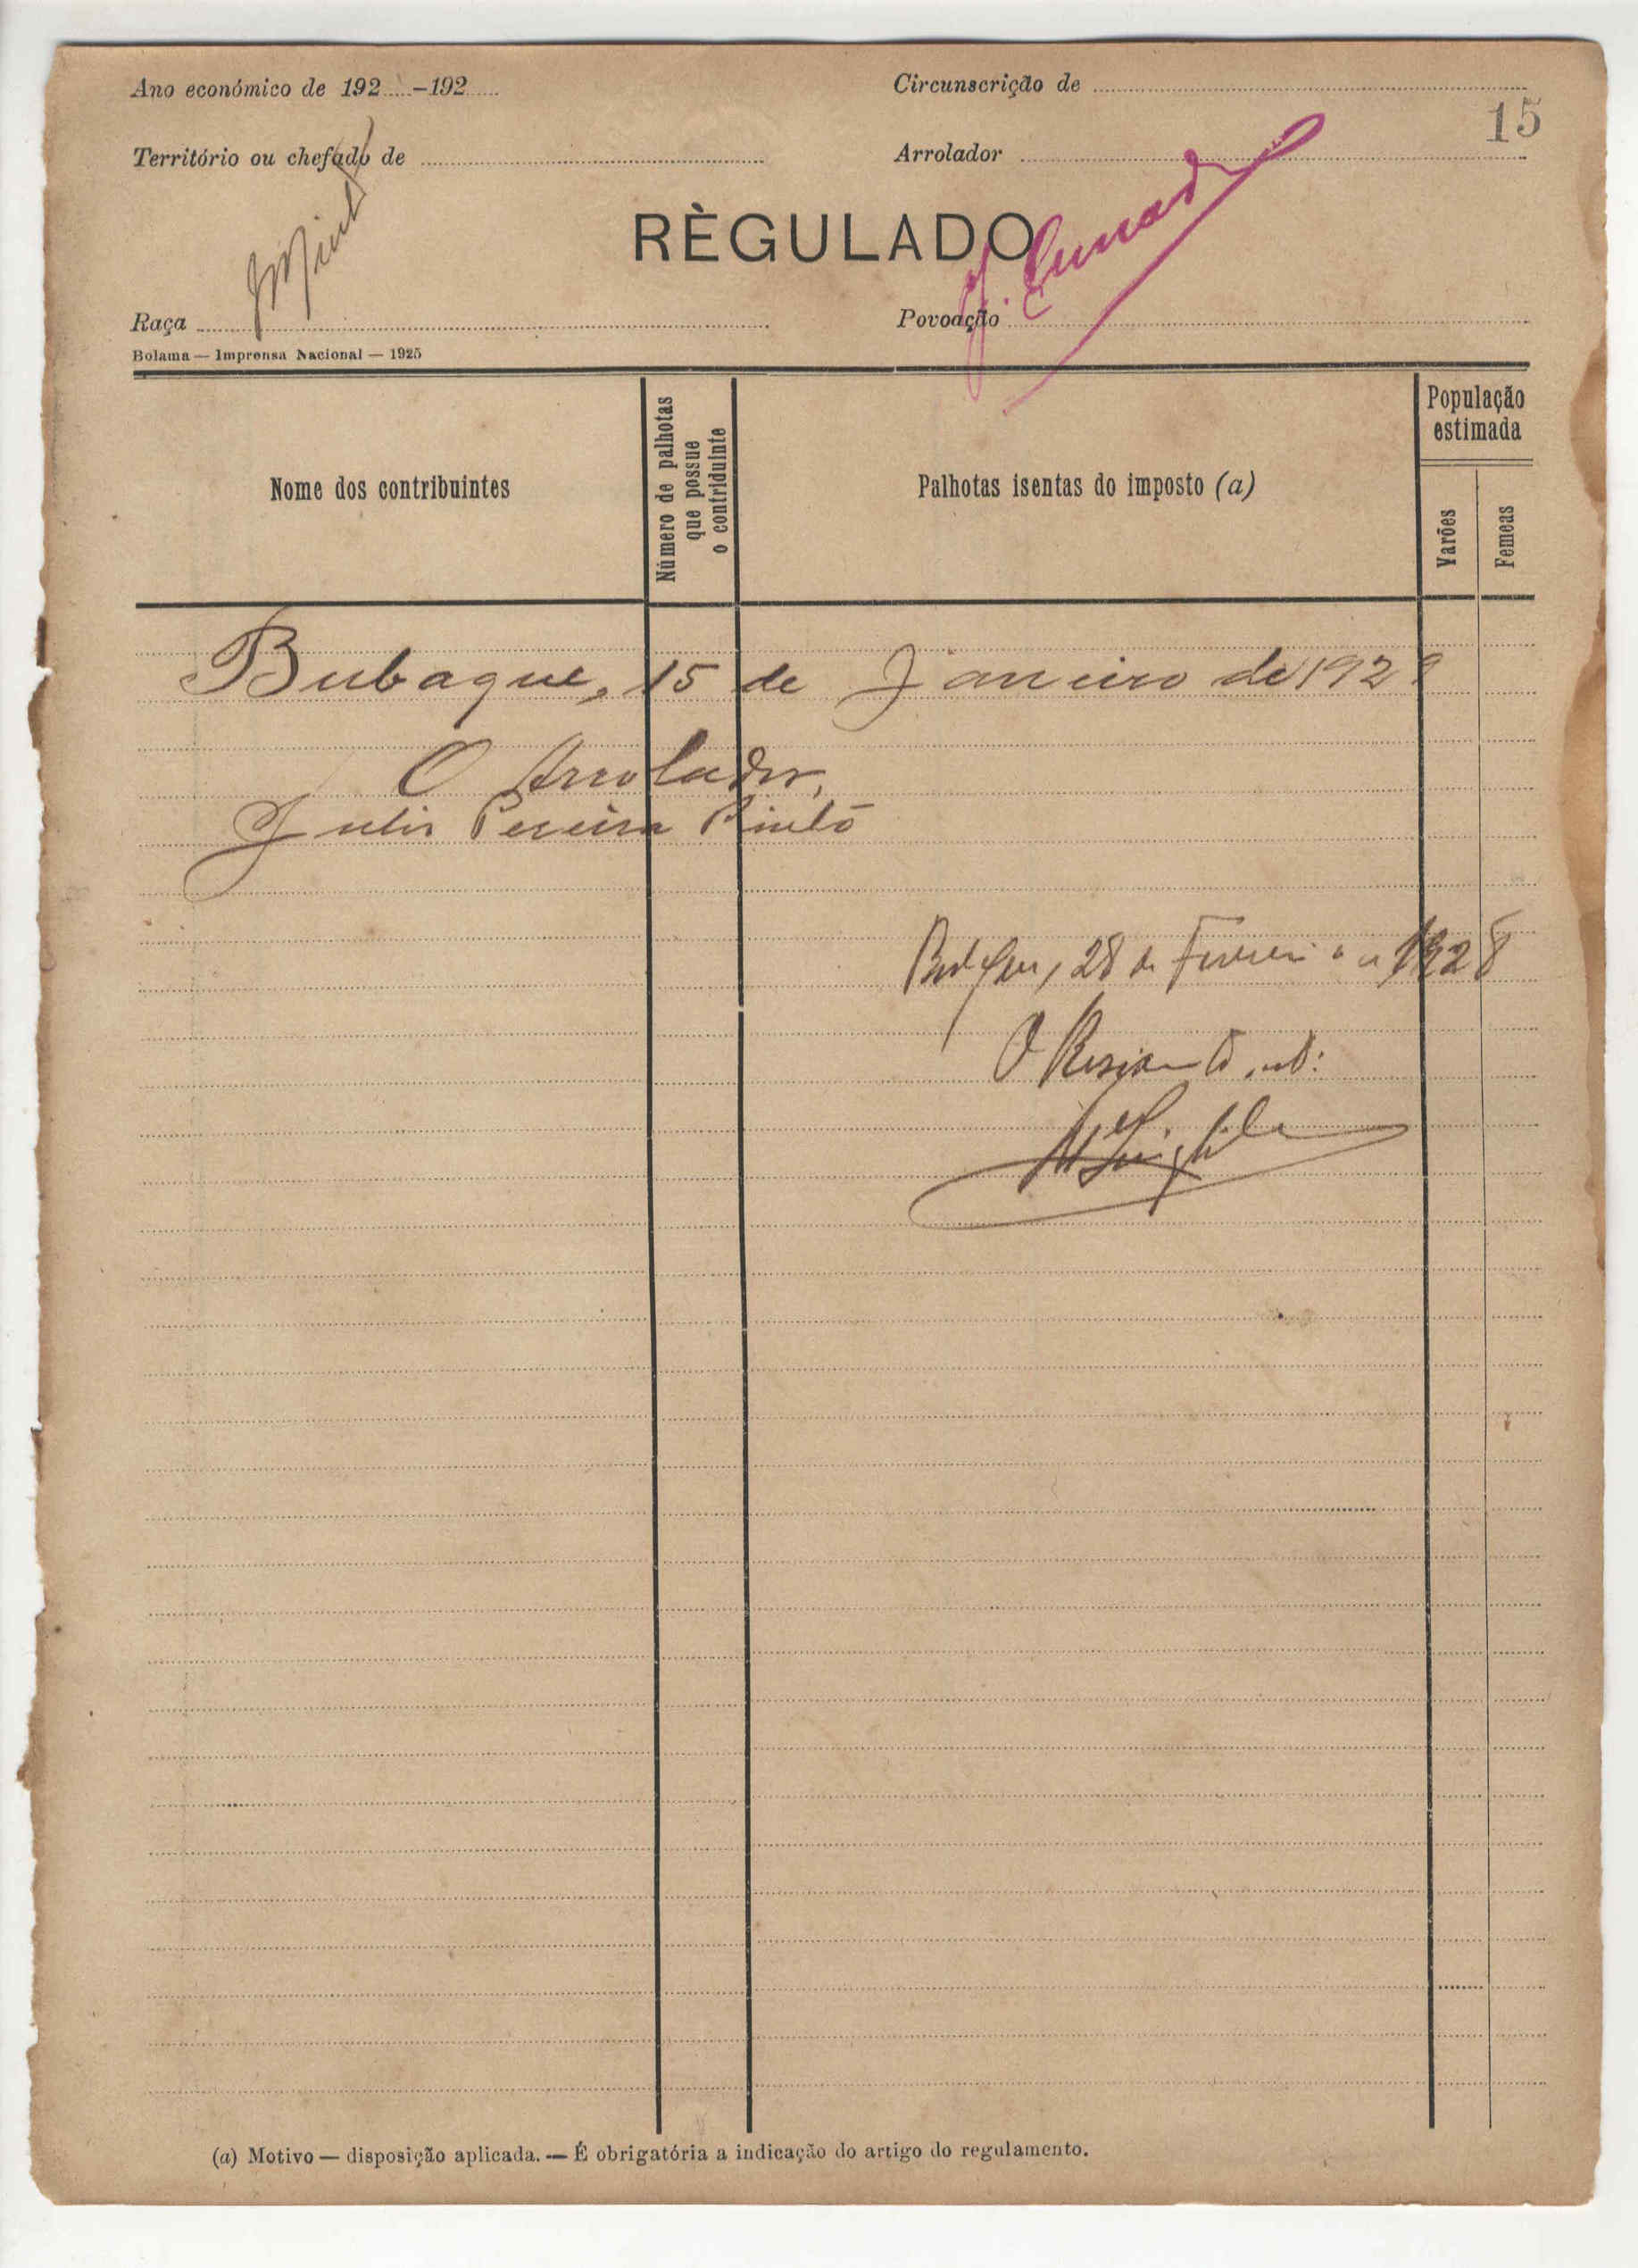 Ano económico de 192.....-192.....
Circunscrição de
15
Território ou chefado de
Arrolador
RÈGULADO
Raça
Povoação
Bolama — Imprensa Nacional — 1925
Nome dos contribuintes
Número de palhotas
que possue
o contriduinte
Palhotas isentas do imposto (a)
População
estimada
Varões
Femeas
Bubaque, 15 de Janeiro de 192
O Arrolador,
Julio Pereira Pinto
28 de Fevereiro 1928
O
(a) Motivo — disposição aplicada. — É obrigatória a indicação do artigo do regulamento.